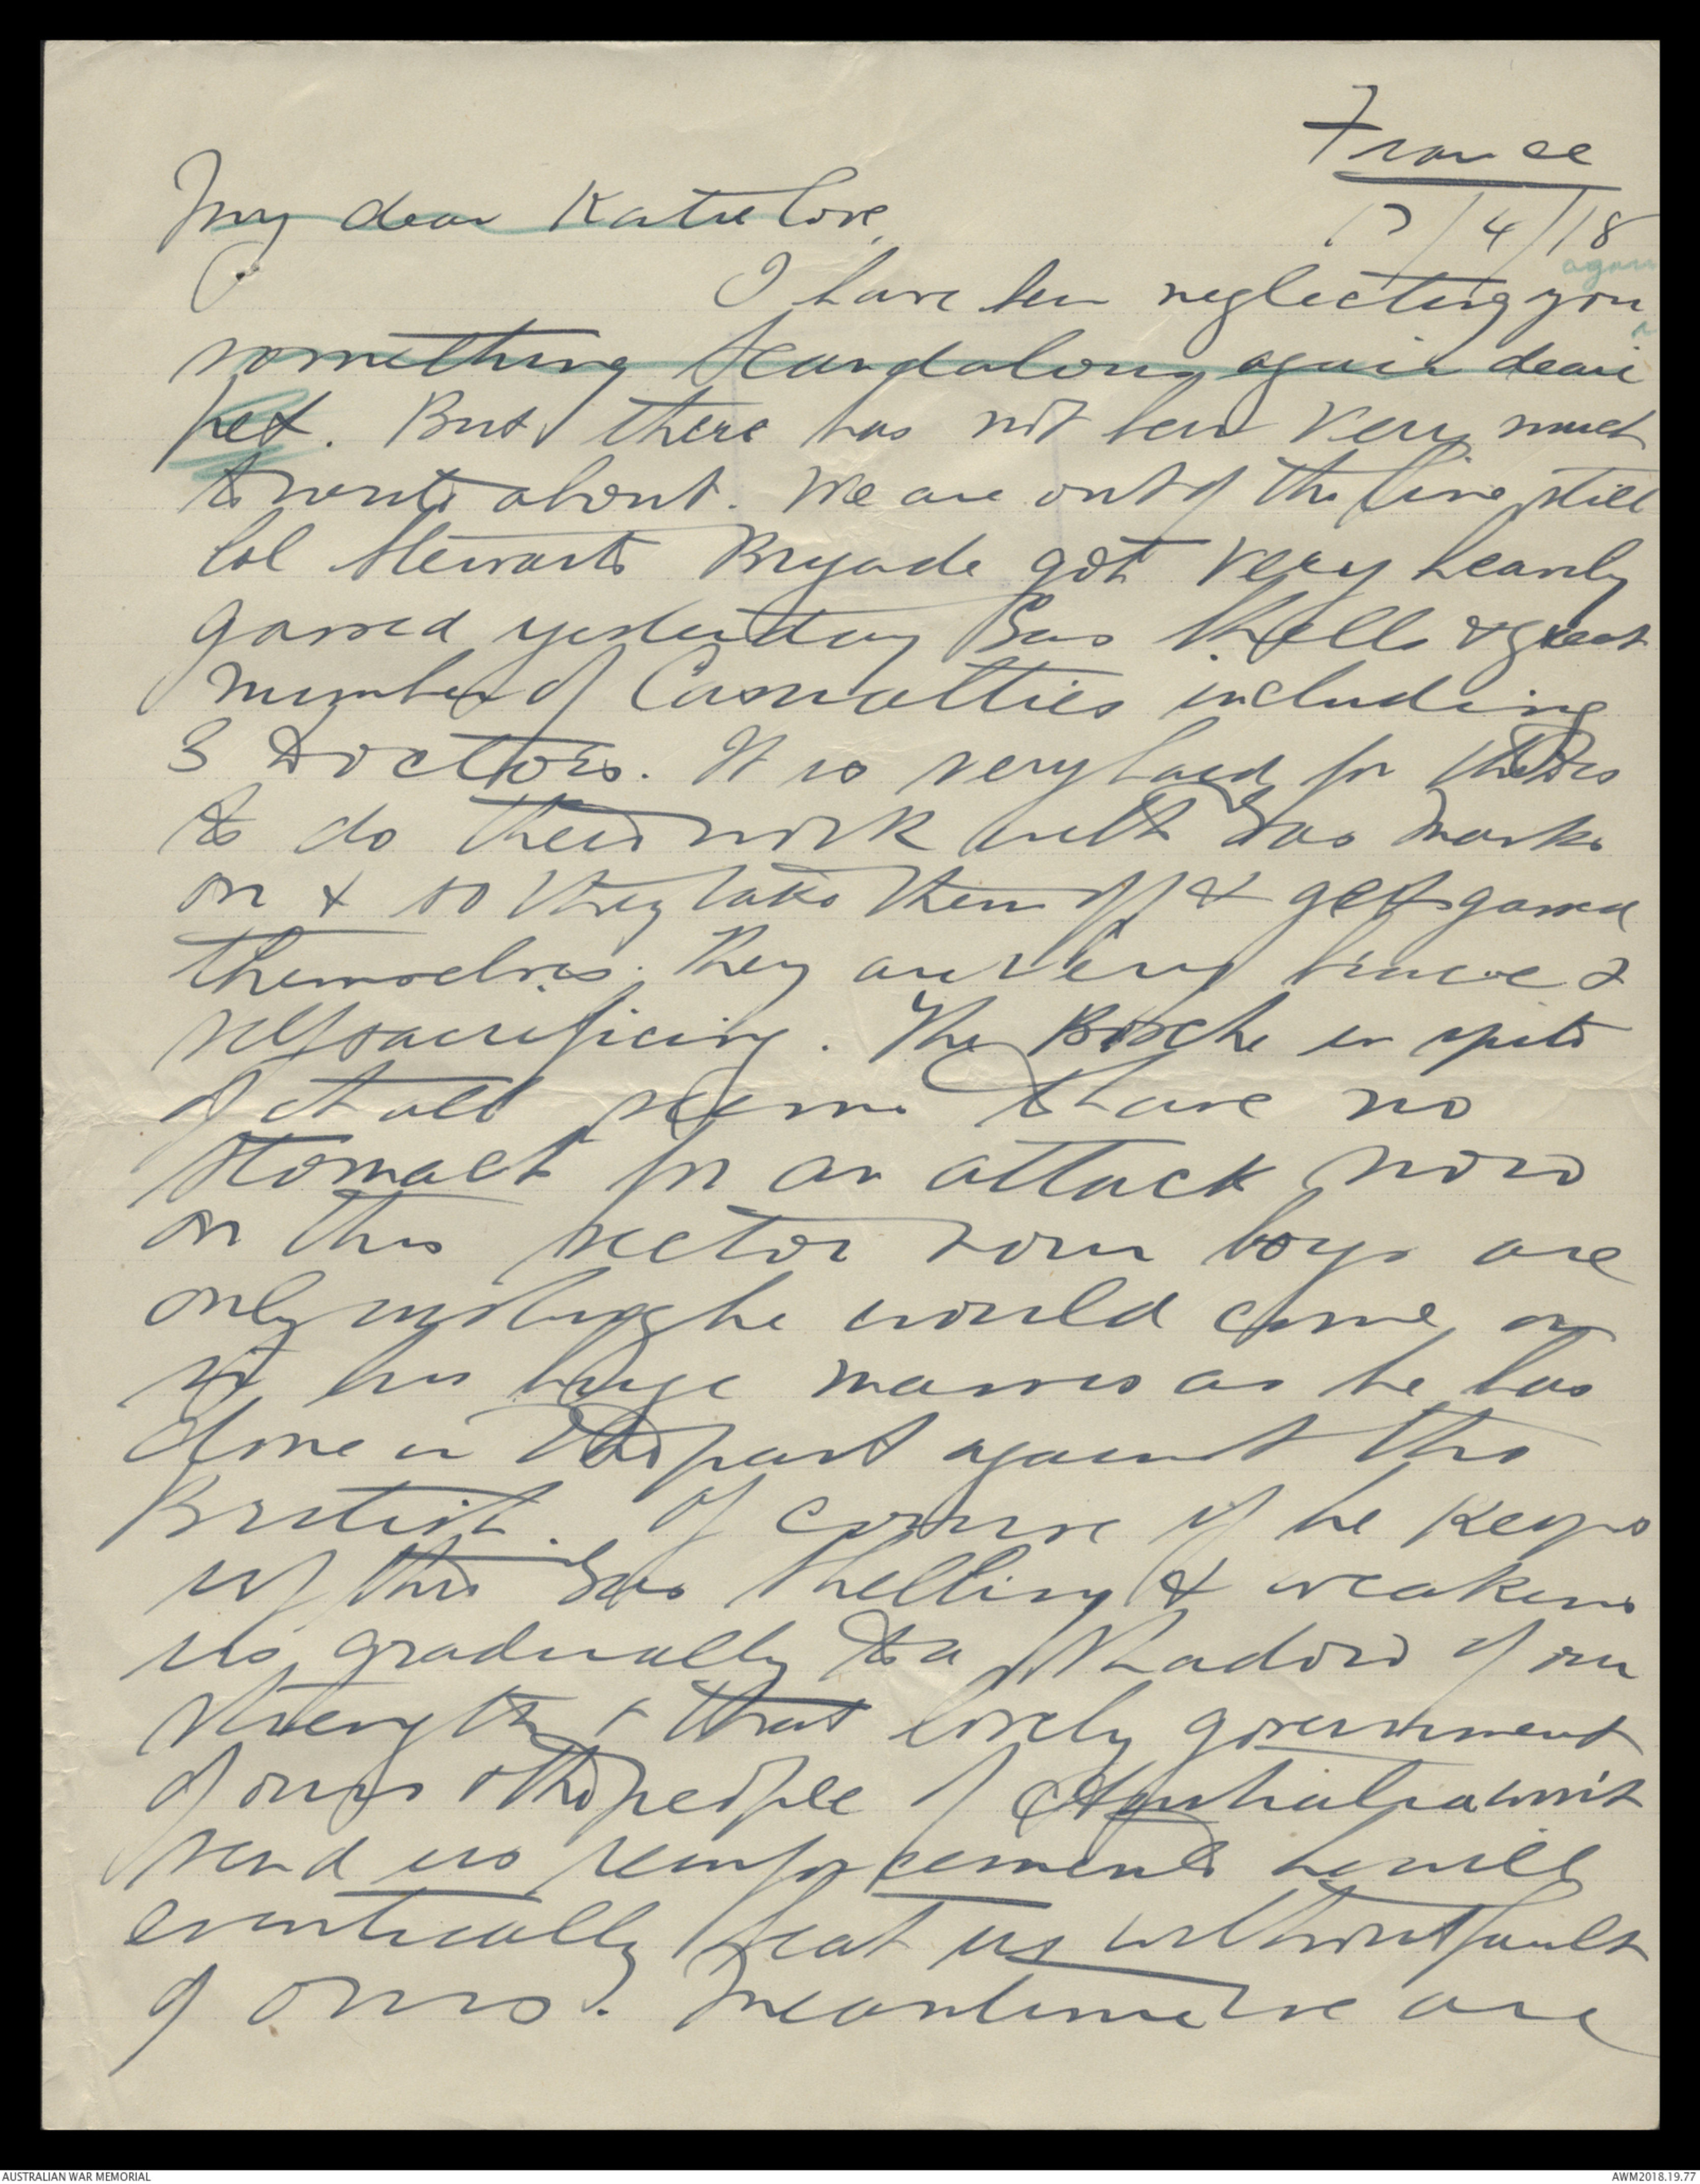 France
17/4/18
My dear Katie love,
again
I have been neglecting you
something scandalous again dearie
pet. But there has not been very much
to write about. We are out of the line still
Col Stewarts Brigade got very heavily
gassed yesterday Gas Shells & great
number of Casualties including
3 Doctors. It is very hard for the Drs
to do their work with Gas Masks
on & so they take them off & get gassed
themselves. They are very brave &
selfsacrificing. The Bosche in spite
of it all seems to have no
stomach for an attack now
on this sector & our boys are
only wishing he would come on
in his huge masses as he has
done in the past against the
British. Of course if he keeps
up this Gas Shelling & weakens
us gradually to a shadow of our
strength & that lovely government
of ours & the people of Australia won't
send us reinforcements he will
eventually beat us without fault
of ours. Meantime we are
AUSTRALIAN WAR MEMORIAL
AWM2018.19.77